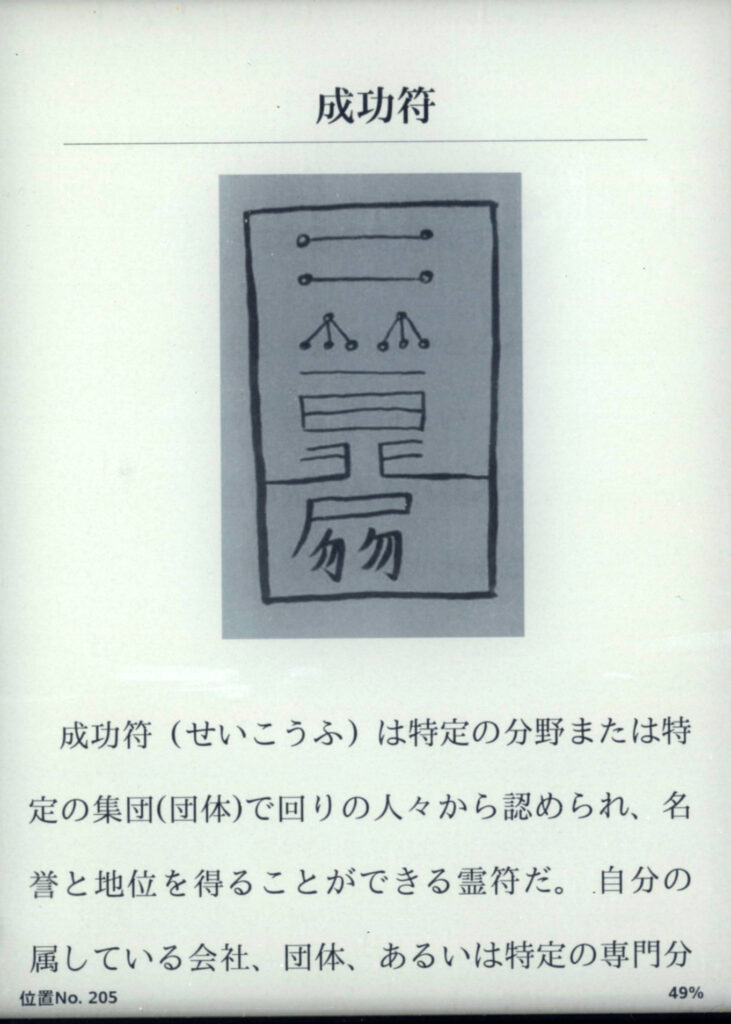 成功符
勿勿
成功符（せいこうふ）は特定の分野または特
定の集団(団体)で回りの人々から認められ、名
誉と地位を得ることができる霊符だ。 自分の
属している会社、団体、あるいは特定の専門分
位置No. 205
49%